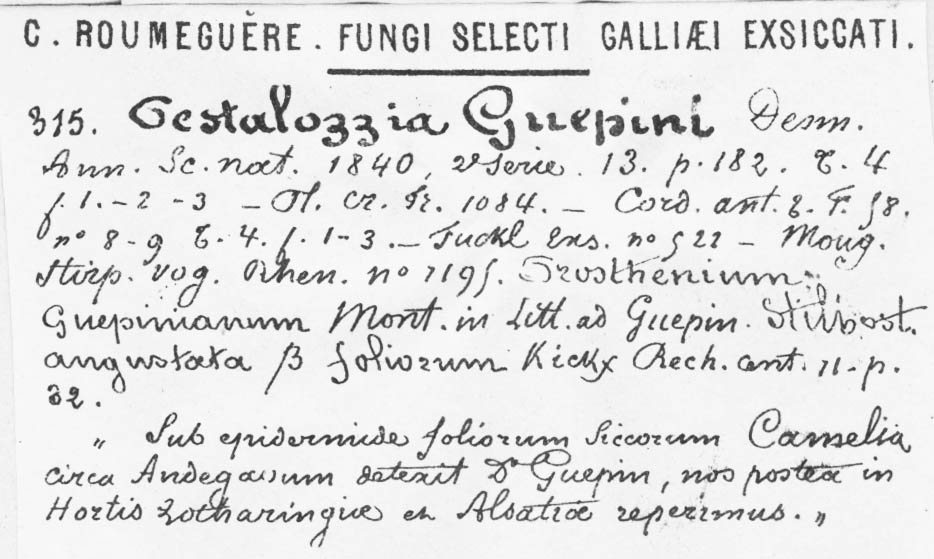 C. ROUMEGUÈRE. FUNGI SELECTI GALLIÆI EXSICCATI.
315. Pestalozzia Guepini Desm.
Ann. Sc. nat. 1840, 2e Serie. 13. p. 182. T. 4
f. 1. - 2 - 3 - Pl. Cr. Fr. 1084. - Cord. ant. 2. F. 58.
no 8-9 T. 4. f. 1-3. - Fuckl Exs. no 522 - Moug.
Stirp. Vog. Rhen. no 1195. Prosthenium
Guepinianum Mont. in Litt. ad Guepin. Stilbost.
angustata β foliorum Kickx Rech. cent. 11. p.
32.
„ Sub epidermide foliorum siccorum Camelia
circa Andegavum detexit Dr Guepin, nos postea in
Hortis Lotharingiæ et Alsatiæ reperimus. „